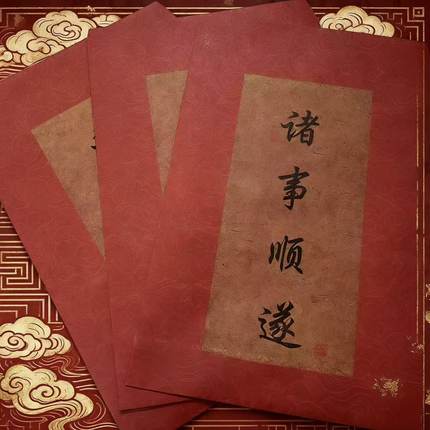 诸事顺遂